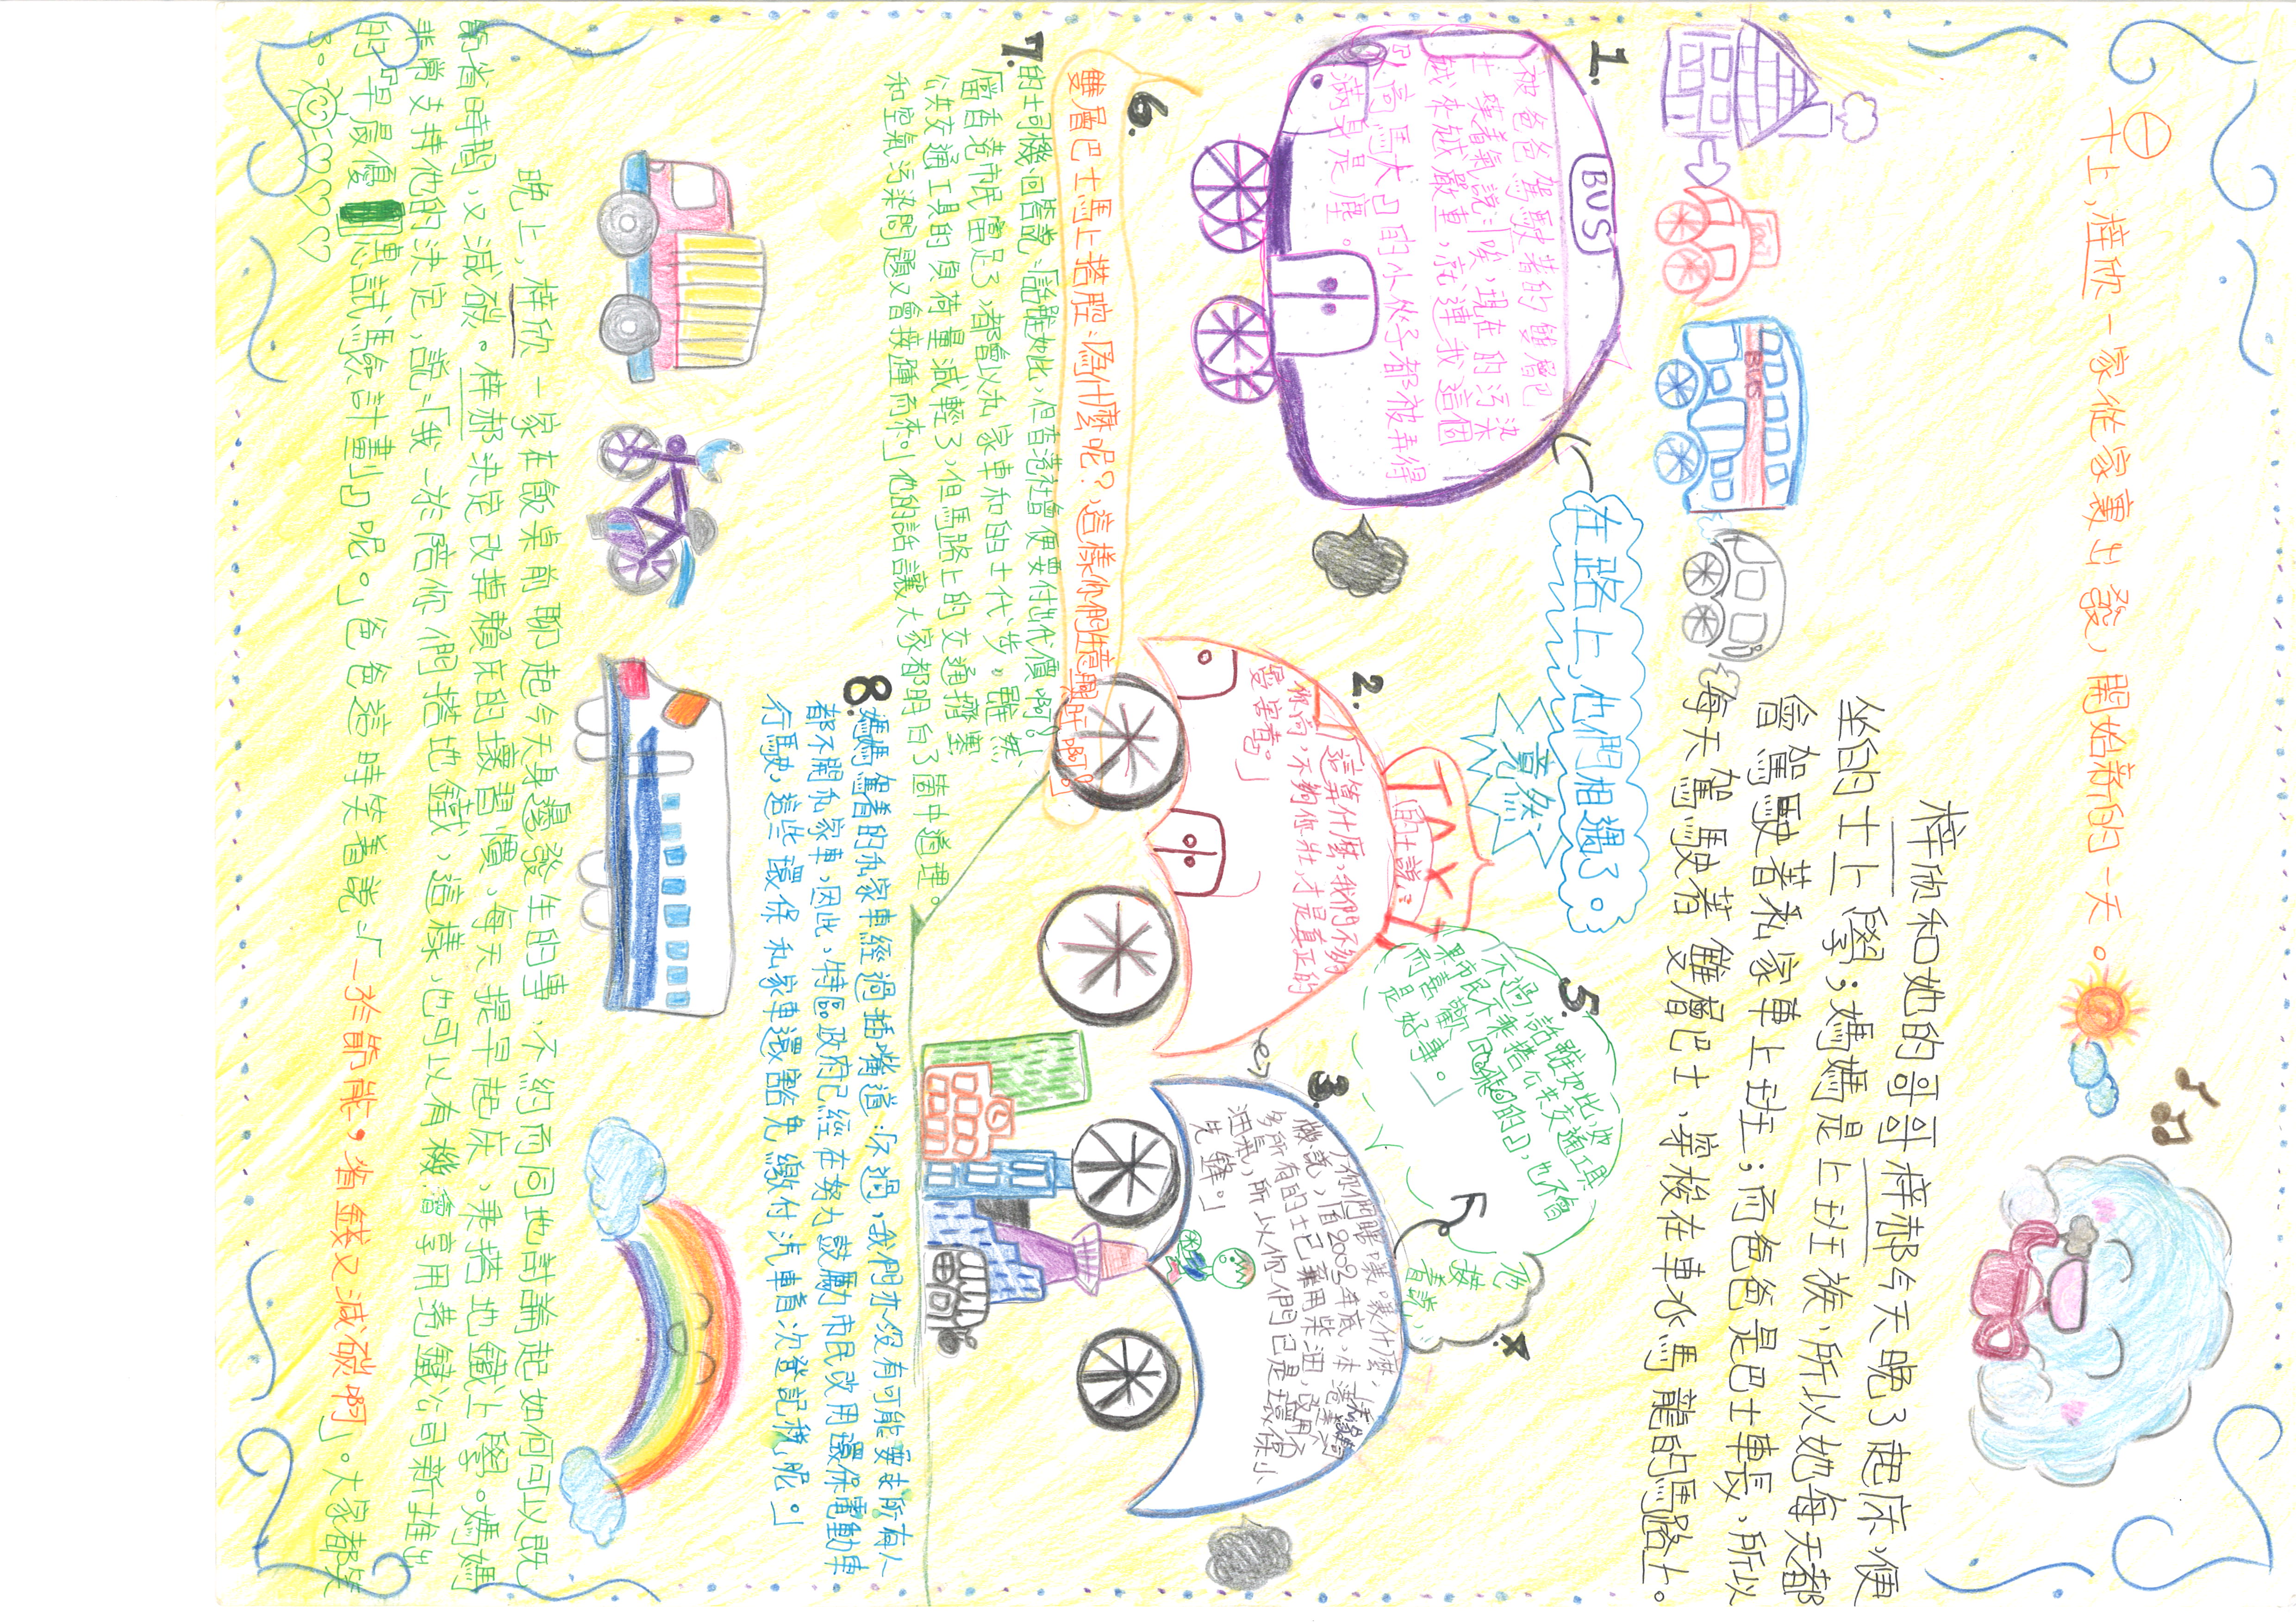 ㊀早上，梓欣一家從家裏出發，開始新的一天。
梓欣和她的哥哥梓郝今天晚了起床，便
坐的士上學；媽媽是上班族，所以她每天都
會駕駛著私家車上班；而爸爸是巴士車長，所以
每天駕駛著雙層巴士，穿梭在車水馬龍的馬路上。
TAXI
BUS
在路上，他們相遇了。
竟然
1.
BUS
被爸爸駕駛着的雙層巴
士嘆着氣說：「唉，現在的污染
越來越嚴重，就連我這個
『人高馬大』的小伙子都被弄得
滿身是塵。
2.
TAXI
的士說：
「這算什麼，我們不夠
你高，不夠你壯，才是真正的
受害者。」
3.
「你們瞎嚷嚷什麼，
機說，「自2003年底，本港差不
多所有的士已棄用柴油，改用石
油氣，所以你們已是環保小
先鋒。」
4.
接着說：
5.
「不過，話雖如此，如
果市民不乘搭公共交通工具
而喜歡『飛的』，也不會
是好事。」
6.
雙層巴士馬上搭腔：「為什麼呢？這樣你們的生意興旺啊！」
7.
的士司機回答說：「話雖如此，但香港社會便要付出代價啊！
當香港市民富足了，都會以私家車和的士代步。雖然
公共交通工具的負荷量減輕了，但馬路上的交通擠塞
和空氣污染問題又會接踵而來。」他的話讓大家都明白了箇中道理。
8.
媽媽駕着的私家車經過插嘴道：「不過，我們亦沒有可能要求所有人
都不開私家車，因此，特區政府已經在努力鼓勵市民改用環保電動車
行駛，這些環保私家車還豁免繳付汽車首次登記稅呢。」
晚上，梓欣一家在飯桌前聊起今天身邊發生的事，不約而同地討論起如何可以既
節省時間，又減碳。梓郝決定改掉賴床的壞習慣，每天提早起床，乘搭地鐵上學。媽媽
非常支持他的決定，說：「我一於陪你們搭地鐵，這樣，也可以有機會享用港鐵公司新推出
的『早晨優惠試驗計劃』呢。」爸爸這時笑着說：「一於節能，省錢又減碳啊」。大家都笑
了。